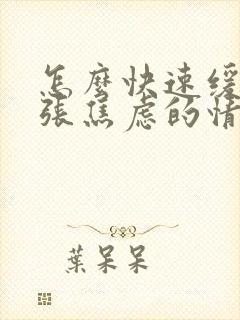 怎麼快速緩
張焦慮的情
葉呆呆